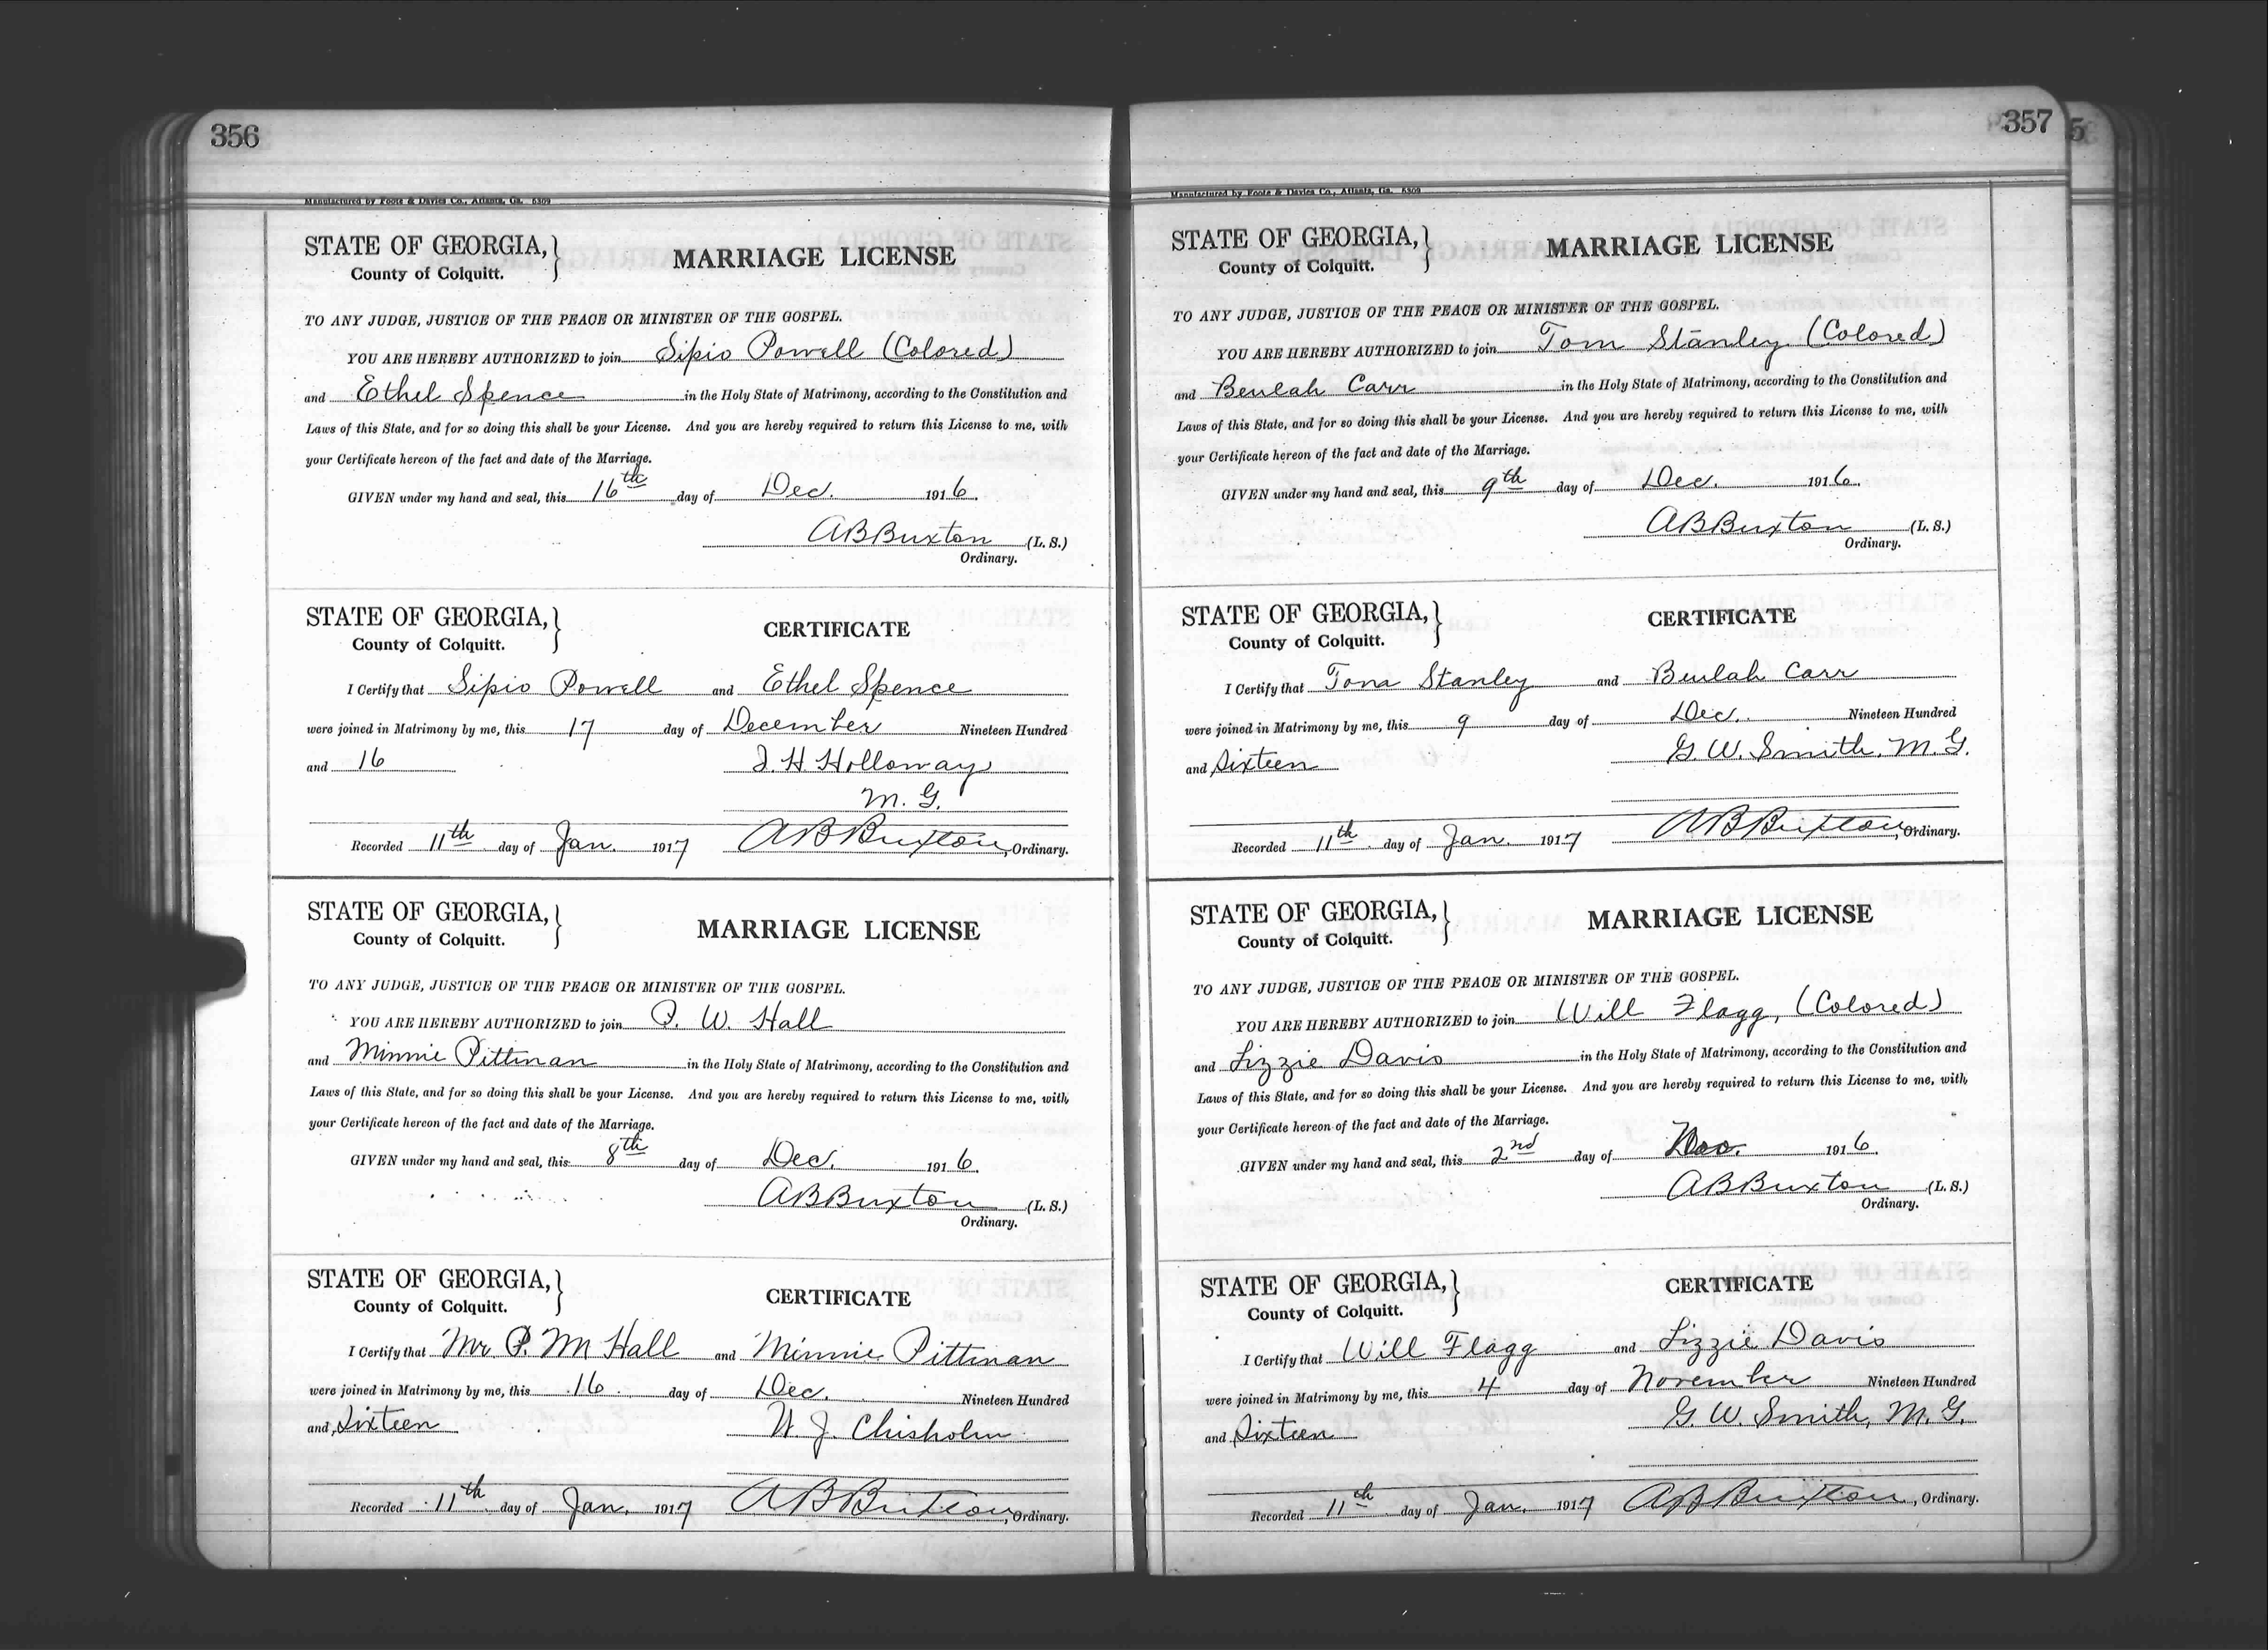 356
Manufactured by Foote & Davies Co., Atlanta, Ga. 6309
STATE OF GEORGIA,
County of Colquitt.
MARRIAGE LICENSE
TO ANY JUDGE, JUSTICE OF THE PEACE OR MINISTER OF THE GOSPEL.
YOU ARE HEREBY AUTHORIZED to join Sipio Powell (Colored)
and Ethel Spence in the Holy State of Matrimony, according to the Constitution and
Laws of this State, and for so doing this shall be your License. And you are hereby required to return this License to me, with
your Certificate hereon of the fact and date of the Marriage.
GIVEN under my hand and seal, this 16th day of Dec. 1916.
ABBuxton (L. S.)
Ordinary.
STATE OF GEORGIA,
County of Colquitt.
CERTIFICATE
I Certify that Sipio Powell and Ethel Spence
were joined in Matrimony by me, this 17 day of December Nineteen Hundred
and 16 J. H. Holloway
M. G.
Recorded 11th day of Jan. 1917 ABBuxton, Ordinary.
STATE OF GEORGIA,
County of Colquitt.
MARRIAGE LICENSE
TO ANY JUDGE, JUSTICE OF THE PEACE OR MINISTER OF THE GOSPEL.
YOU ARE HEREBY AUTHORIZED to join P. W. Hall
and Minnie Pittman in the Holy State of Matrimony, according to the Constitution and
Laws of this State, and for so doing this shall be your License. And you are hereby required to return this License to me, with
your Certificate hereon of the fact and date of the Marriage.
GIVEN under my hand and seal, this 8th day of Dec. 1916.
ABBuxton (L. S.)
Ordinary.
STATE OF GEORGIA,
County of Colquitt.
CERTIFICATE
I Certify that Mr P. M Hall and Minnie Pittman
were joined in Matrimony by me, this 16 day of Dec. Nineteen Hundred
and Sixteen W. J. Chisholm
Recorded 11th day of Jan. 1917 ABBuxton, Ordinary.
357
Manufactured by Foote & Davies Co., Atlanta, Ga. 6309
STATE OF GEORGIA,
County of Colquitt.
MARRIAGE LICENSE
TO ANY JUDGE, JUSTICE OF THE PEACE OR MINISTER OF THE GOSPEL.
YOU ARE HEREBY AUTHORIZED to join Tom Stanley (Colored)
and Beulah Carr in the Holy State of Matrimony, according to the Constitution and
Laws of this State, and for so doing this shall be your License. And you are hereby required to return this License to me, with
your Certificate hereon of the fact and date of the Marriage.
GIVEN under my hand and seal, this 9th day of Dec. 1916.
ABBuxton (L. S.)
Ordinary.
STATE OF GEORGIA,
County of Colquitt.
CERTIFICATE
I Certify that Tom Stanley and Beulah Carr
were joined in Matrimony by me, this 9 day of Dec. Nineteen Hundred
and Sixteen G. W. Smith, M. G.
Recorded 11th day of Jan. 1917 ABBuxton, Ordinary.
STATE OF GEORGIA,
County of Colquitt.
MARRIAGE LICENSE
TO ANY JUDGE, JUSTICE OF THE PEACE OR MINISTER OF THE GOSPEL.
YOU ARE HEREBY AUTHORIZED to join Will Flagg, (Colored)
and Lizzie Davis in the Holy State of Matrimony, according to the Constitution and
Laws of this State, and for so doing this shall be your License. And you are hereby required to return this License to me, with
your Certificate hereon of the fact and date of the Marriage.
GIVEN under my hand and seal, this 2nd day of 1916.
ABBuxton (L. S.)
Ordinary.
STATE OF GEORGIA,
County of Colquitt.
CERTIFICATE
I Certify that Will Flagg and Lizzie Davis
were joined in Matrimony by me, this 4 day of November Nineteen Hundred
and Sixteen G. W. Smith, M. G.
Recorded 11th day of Jan. 1917 ABBuxton, Ordinary.